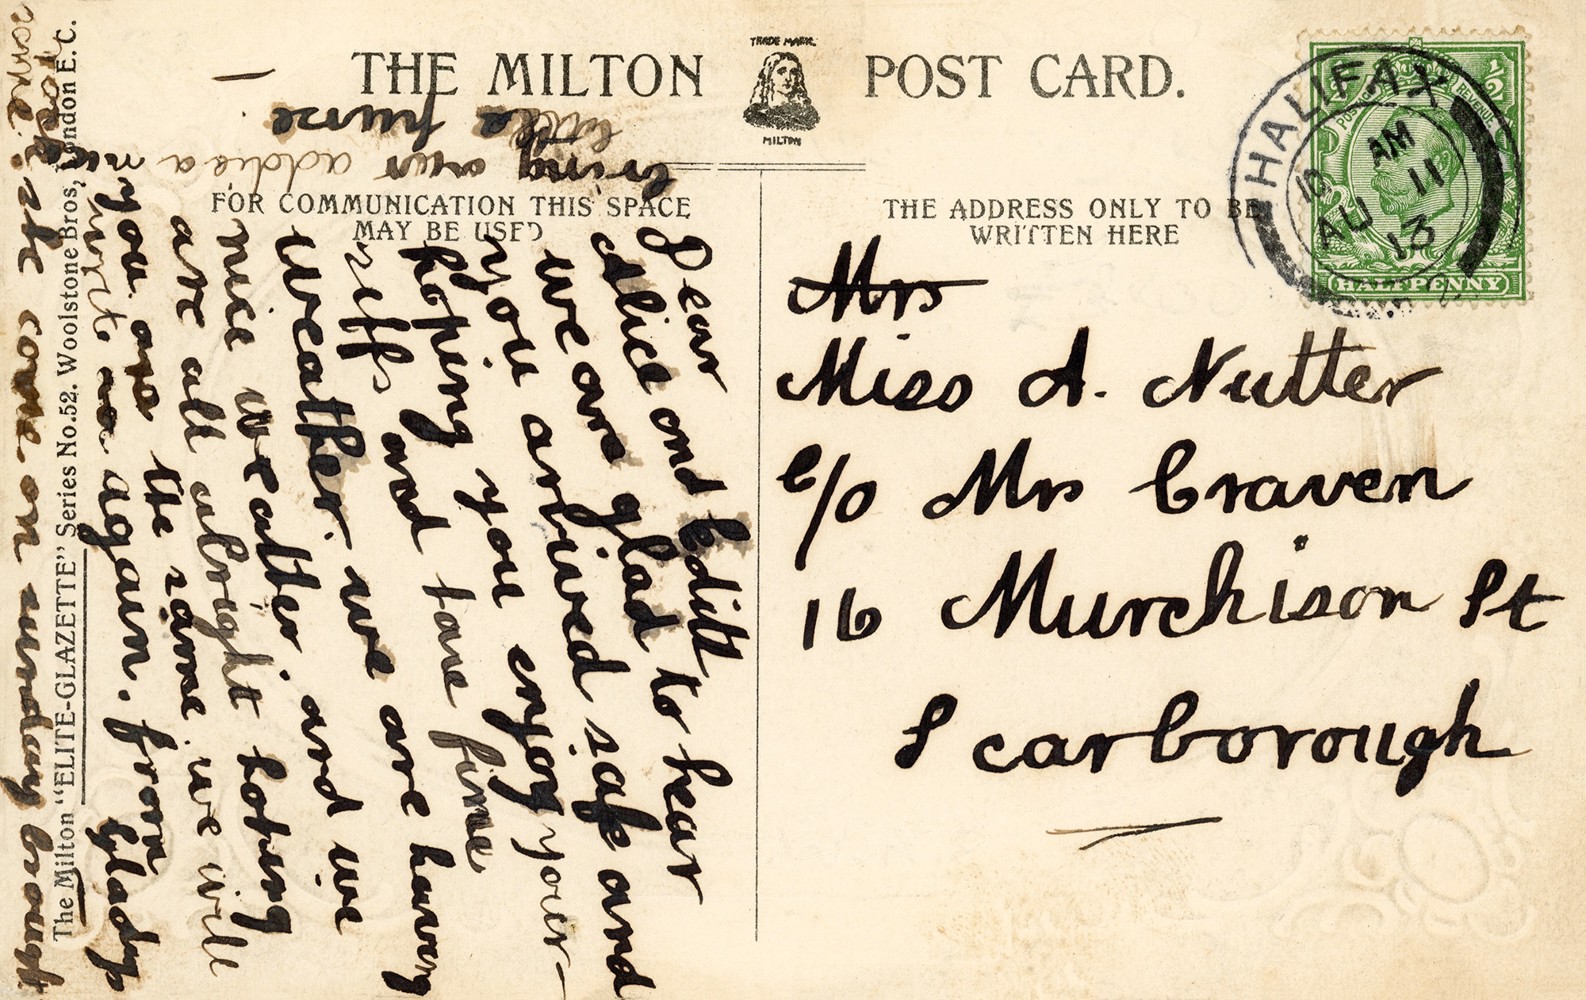 THE MILTON POST CARD.
TRADE MARK
MILTON
FOR COMMUNICATION THIS SPACE
MAY BE USED
THE ADDRESS ONLY TO BE
WRITTEN HERE
HALIFAX
10 AM
AU 11
13
POSTAGE REVENUE
HALFPENNY
Mrs
Miss A. Nutter
C/o Mrs Craven
16 Murchison St
Scarborough
Dear
Alice and Edith to hear
we are glad safe and
you arrived
hoping you enjoy your-
selfs and have fine
weather we are having
nice weather. and we
are all allright hoping
you are the same. we will
write as again. from Gladys
come on sunday brought
little purse
The Milton "ELITE-GLAZETTE" Series No.52. Woolstone Bros, London E.C.